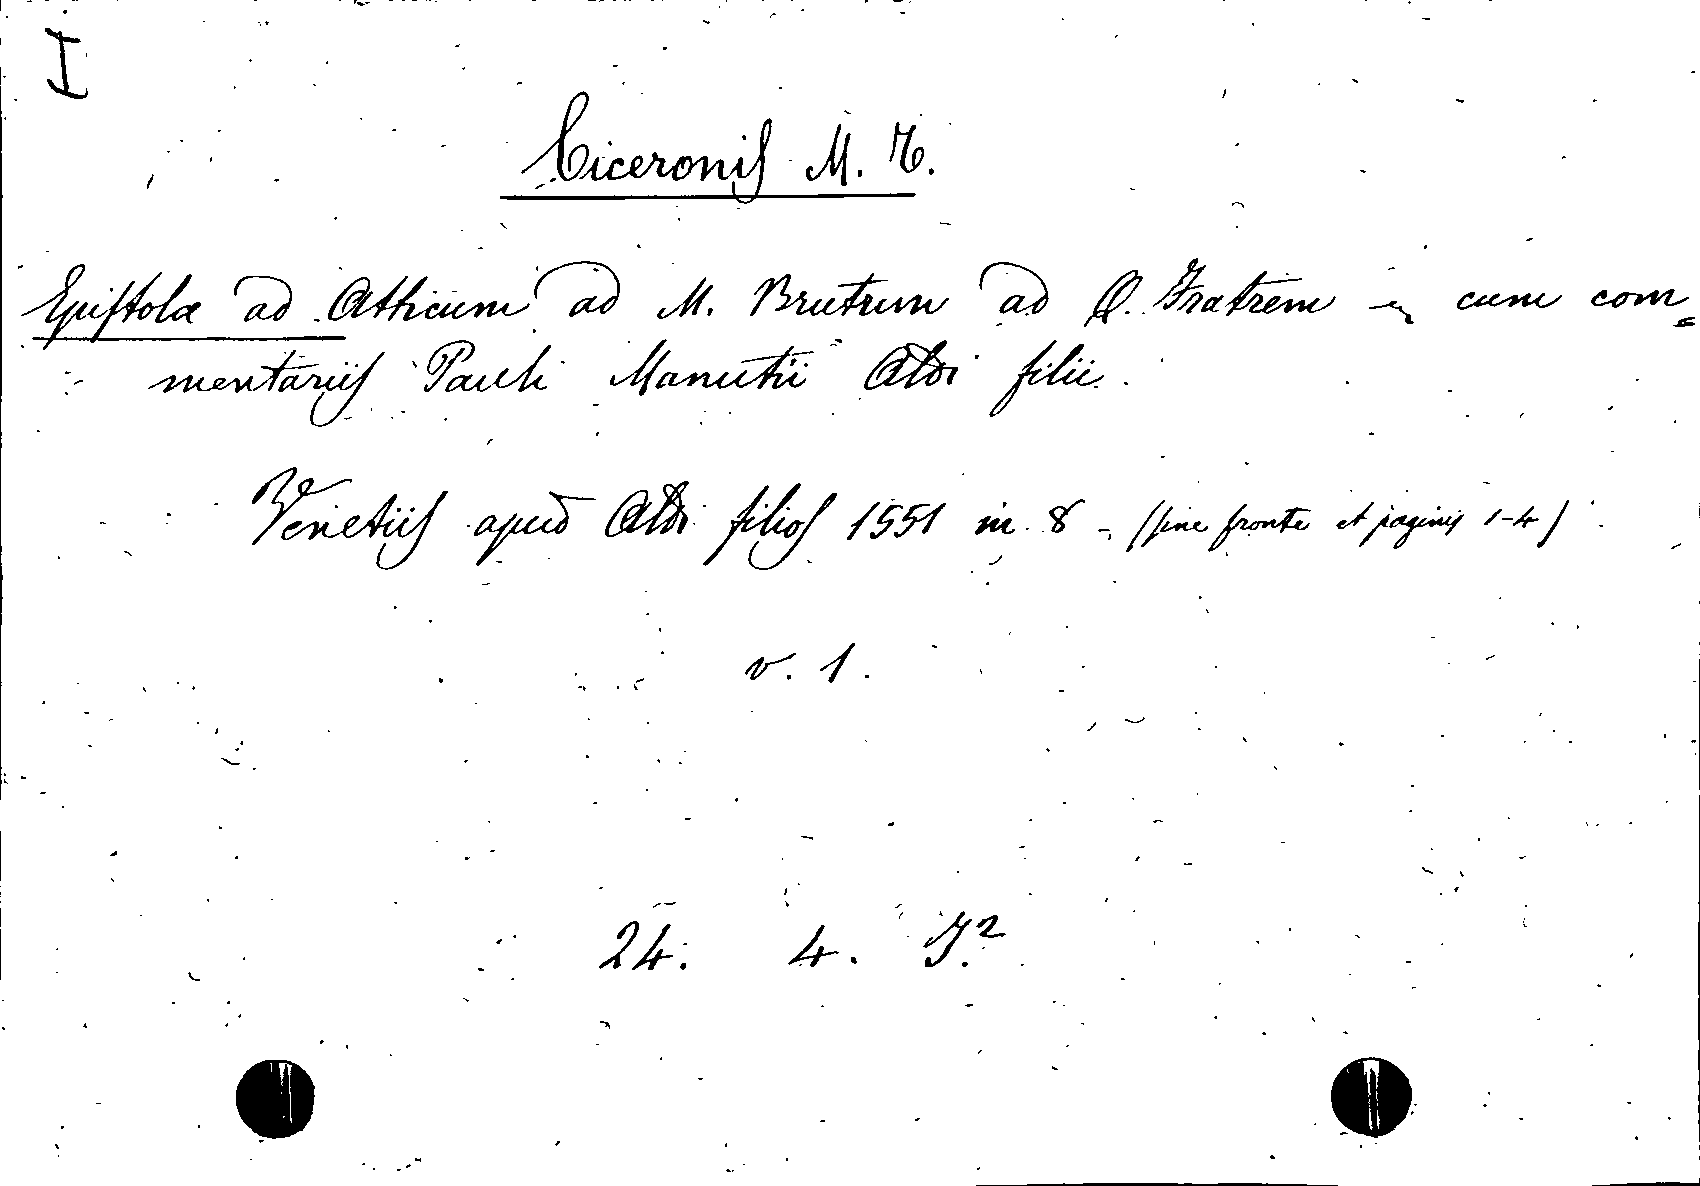 I
Ciceronis M. T.
Epistolæ ad Atticum ad M. Brutum ad Q. Fratrem - cum com=
mentariis Pauli Manutii Aldi filii.
Venetiis apud Aldi filios 1551 in 8 - (sine fronte et paginis 1-4)
v. 1.
24. 4. J.²